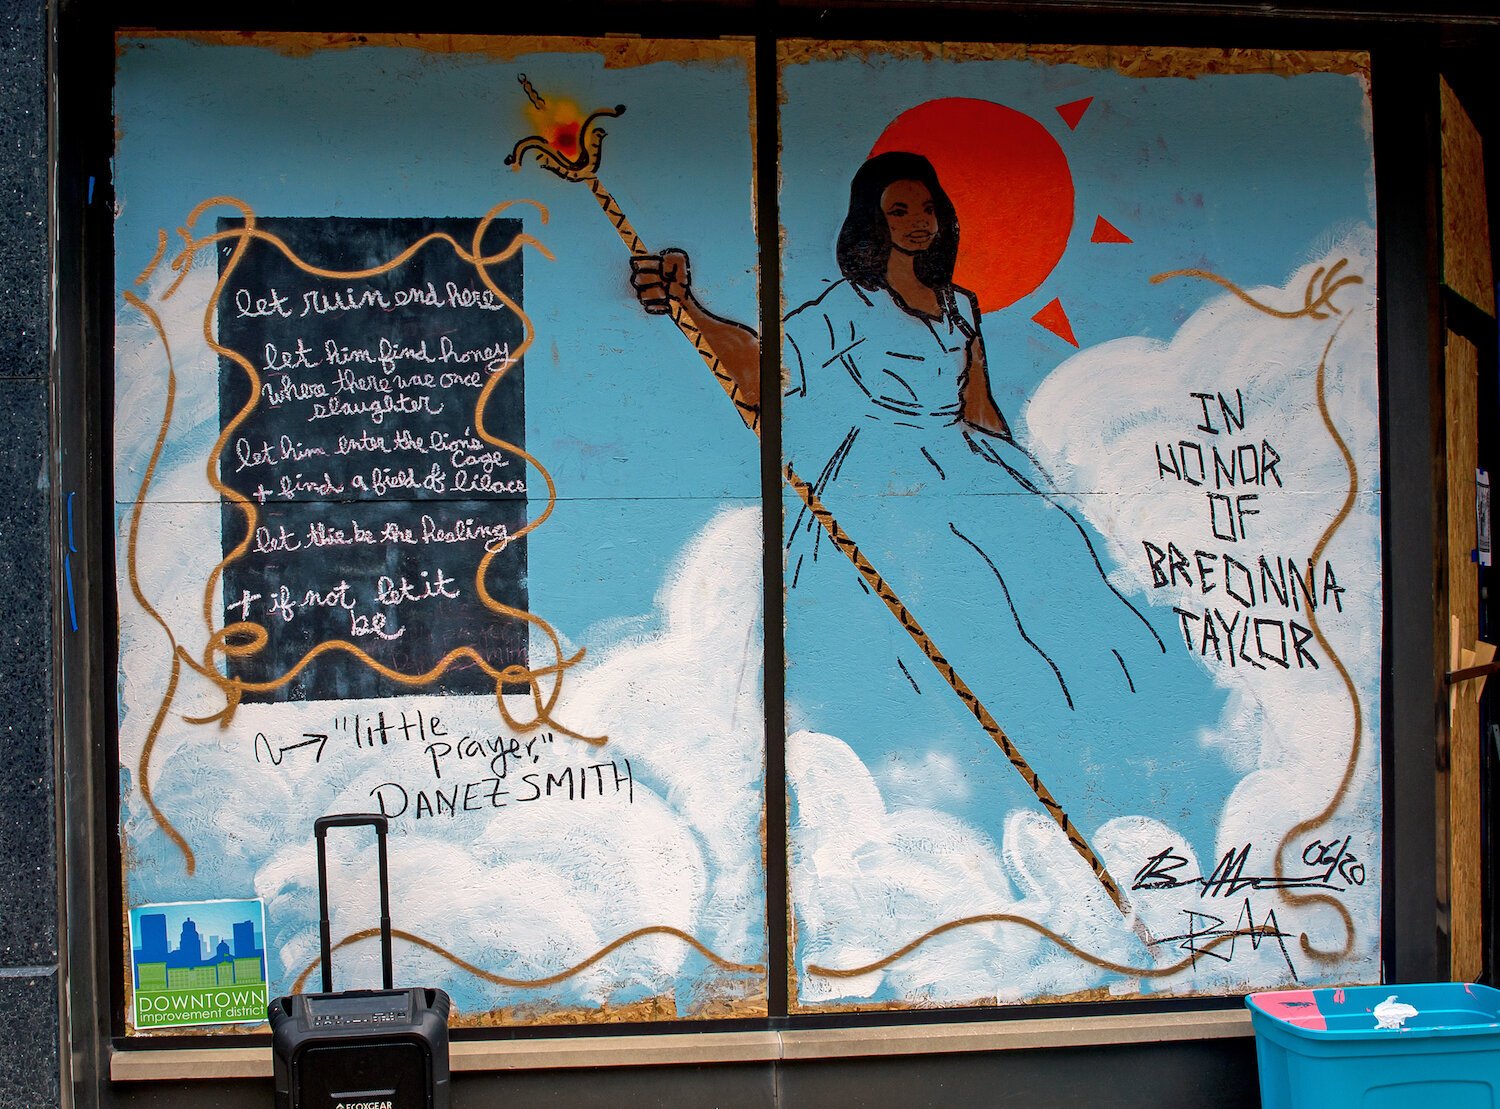 let ruin end here
let him find honey
where there was once
slaughter
let him enter the lion's
cage
+ find a field of lilacs
let this be the healing
+ if not let it
be
"little
prayer,"
DANEZ SMITH
IN
HONOR
OF
BREONNA
TAYLOR
06/20
DOWNTOWN
improvement district
ECOXGEAR